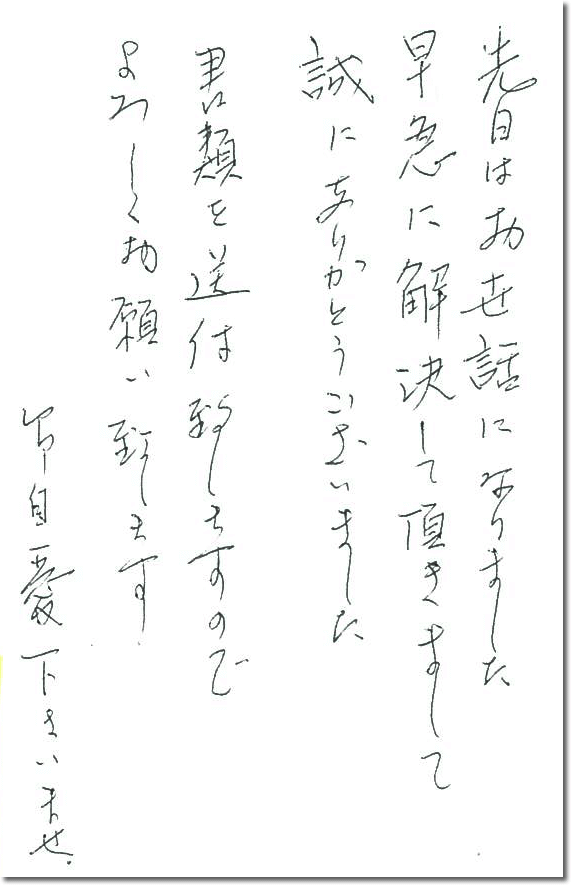 先日はお世話になりました
早急に解決して頂きまして
誠にありがとうございました
書類を送付致しますので
よろしくお願い致します
御自愛下さいませ.